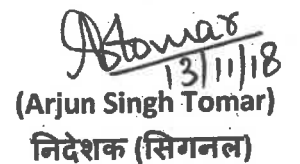 AsTomar
13/11/18
(Arjun Singh Tomar)
निदेशक (सिगनल)